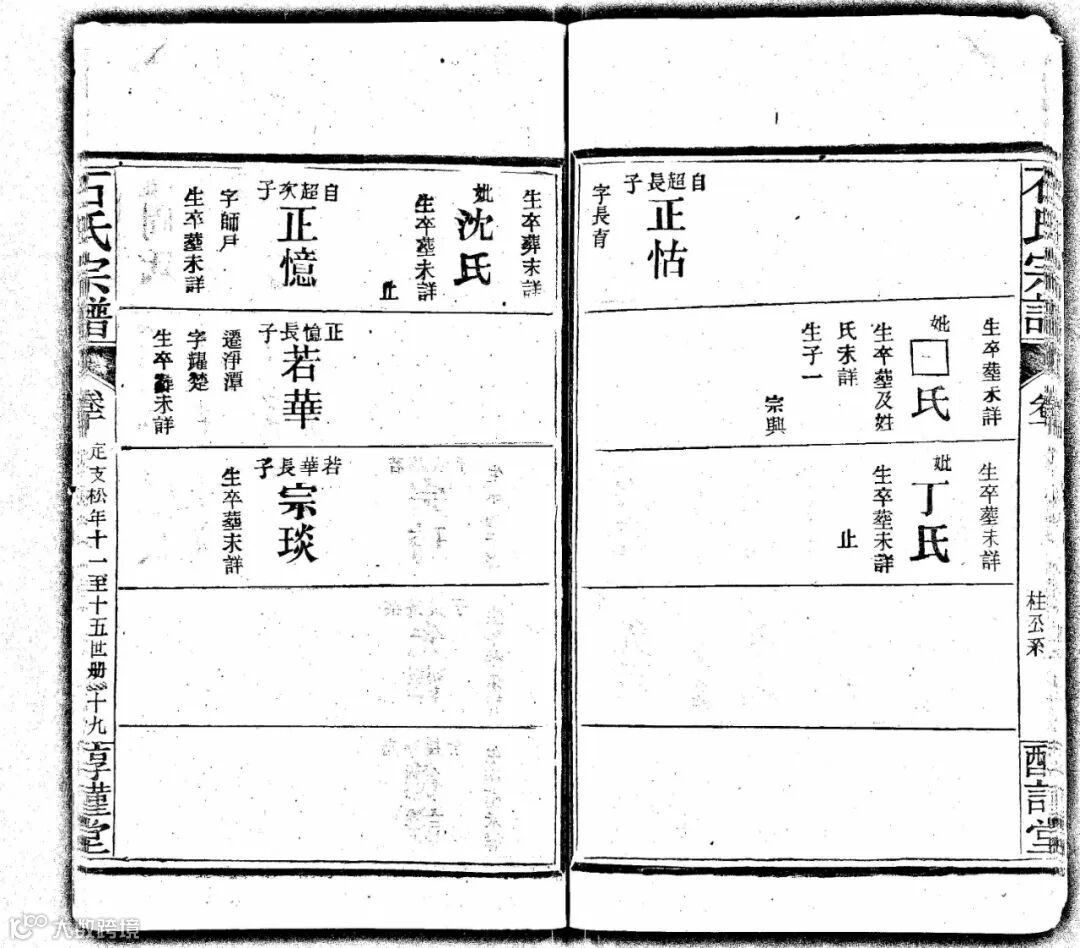 石氏宗譜
卷
柱公系
自超長子
正怙
字長育
生卒塟未詳
妣□氏
生卒塟及姓
氏未詳
生子一
宗興
生卒塟未詳
妣丁氏
生卒塟未詳
止
生卒葬未詳
妣沈氏
生卒塟未詳
止
自超次子
正憶
字師尹
生卒塟未詳
正憶長子
若華
遷淨潭
字耀楚
生卒葬未詳
若華長子
宗琰
生卒塟未詳
石氏宗譜
卷
定支松年十一至十五世册
十九
大数跨境